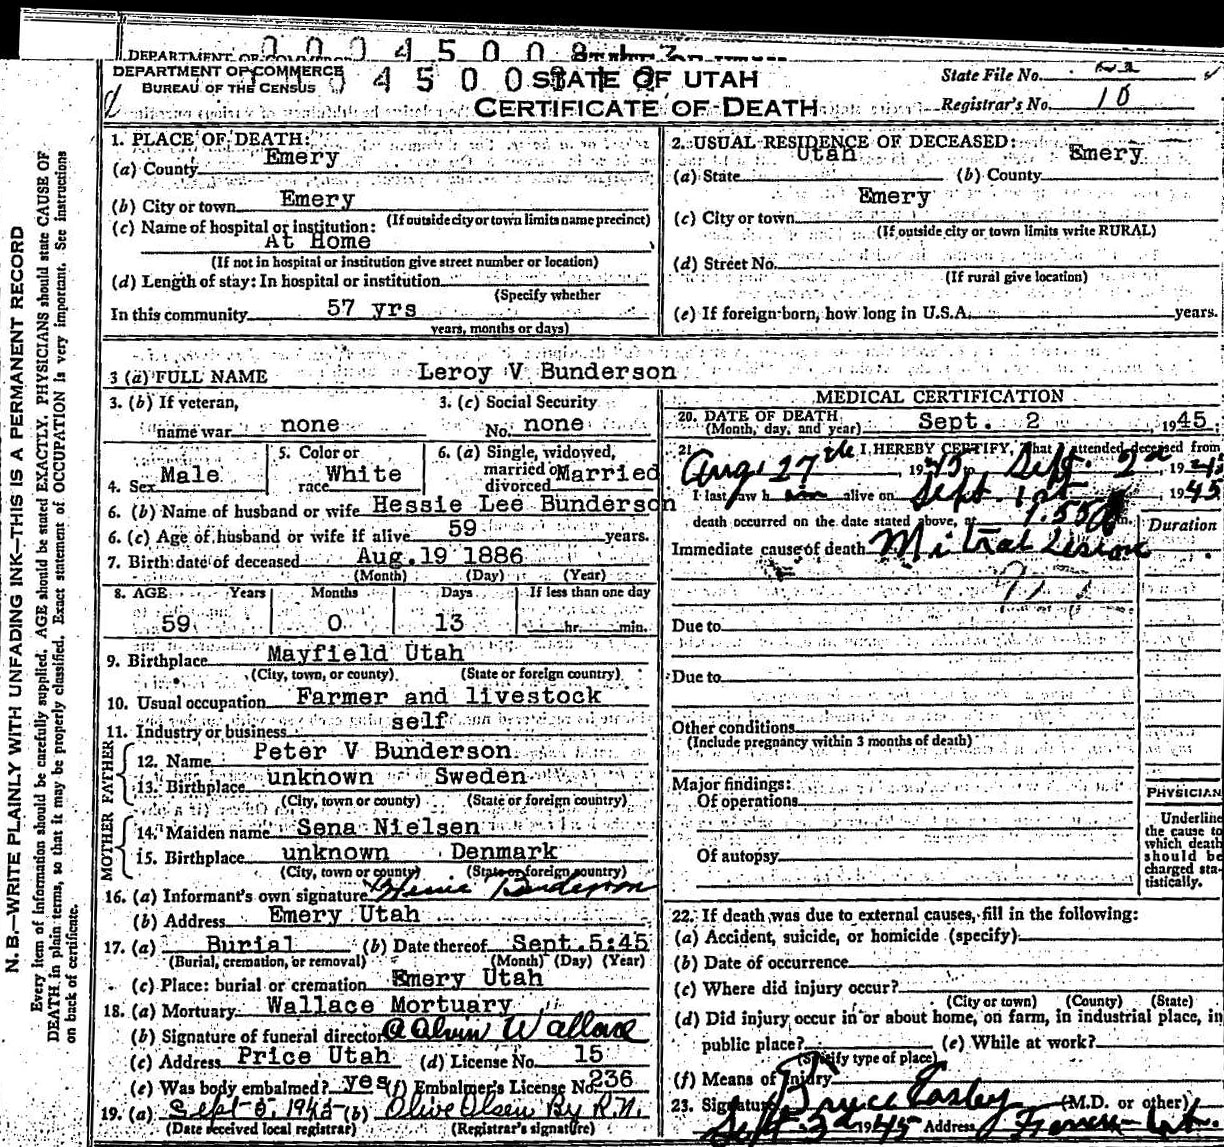 DEPARTMENT OF COMMERCE
BUREAU OF THE CENSUS
STATE OF UTAH
CERTIFICATE OF DEATH
State File No.
Registrar's No. 10
N. B.—WRITE PLAINLY WITH UNFADING INK—THIS IS A PERMANENT RECORD
Every item of information should be carefully supplied. AGE should be stated EXACTLY. PHYSICIANS should state CAUSE OF
DEATH in plain terms, so that it may be properly classified. Exact statement of OCCUPATION is very important. See instructions
on back of certificate.
1. PLACE OF DEATH:
(a) County Emery
(b) City or town Emery
(If outside city or town limits name precinct)
(c) Name of hospital or institution:
At Home
(If not in hospital or institution give street number or location)
(d) Length of stay: In hospital or institution
(Specify whether
In this community 57 yrs
years, months or days)
2. USUAL RESIDENCE OF DECEASED:
(a) State Utah (b) County Emery
(c) City or town Emery
(If outside city or town limits write RURAL)
(d) Street No.
(If rural give location)
(e) If foreign-born, how long in U.S.A. years.
3 (a) FULL NAME Leroy V Bunderson
3. (b) If veteran, name war none
3. (c) Social Security No. none
4. Sex Male
5. Color or race White
6. (a) Single, widowed, married or divorced Married
6. (b) Name of husband or wife Hessie Lee Bunderson
6. (c) Age of husband or wife if alive 59 years.
7. Birth date of deceased Aug. 19 1886
(Month) (Day) (Year)
8. AGE Years Months Days If less than one day
59 0 13 hr. min.
9. Birthplace Mayfield Utah
(City, town, or county) (State or foreign country)
10. Usual occupation Farmer and livestock
11. Industry or business self
FATHER
12. Name Peter V Bunderson
13. Birthplace unknown Sweden
(City, town or county) (State or foreign country)
MOTHER
14. Maiden name Sena Nielsen
15. Birthplace unknown Denmark
(City, town or county) (State or foreign country)
16. (a) Informant's own signature Bunderson
(b) Address Emery Utah
17. (a) Burial (b) Date thereof Sept. 5:45
(Burial, cremation, or removal) (Month) (Day) (Year)
(c) Place: burial or cremation Emery Utah
18. (a) Mortuary Wallace Mortuary
(b) Signature of funeral director Wallace
(c) Address Price Utah (d) License No. 15
(e) Was body embalmed? yes (f) Embalmer's License No. 236
19. (a) Sept 1945 (b) Olive Olsen By R.N.
(Date received local registrar) (Registrar's signature)
MEDICAL CERTIFICATION
20. DATE OF DEATH
(Month, day, and year) Sept. 2, 1945
21. I HEREBY CERTIFY, That I attended deceased from
Aug. 27th, 1945 to Sept. 2nd, 1945
I last saw him alive on Sept. 1st, 1945
death occurred on the date stated above, at 1.55 A m.
Duration
Immediate cause of death Mitral Lesion
Due to
Due to
Other conditions
(Include pregnancy within 3 months of death)
Major findings:
Of operations
Of autopsy
PHYSICIAN
Underline
the cause to
which death
should be
charged sta-
tistically.
22. If death was due to external causes, fill in the following:
(a) Accident, suicide, or homicide (specify)
(b) Date of occurrence
(c) Where did injury occur?
(City or town) (County) (State)
(d) Did injury occur in or about home, on farm, in industrial place, in
public place? (e) While at work?
(Specify type of place)
(f) Means of Injury
23. Signature Bruce Easley (M.D. or other)
Sept. 3d 1945 Address Ferron Ut.